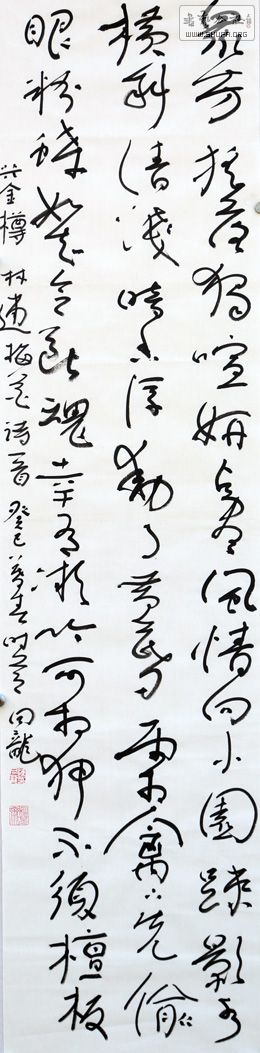 眾芳搖落獨喧妍占盡風情向小園疎影水
橫斜清淺暗香浮動月黃昏霜禽欲下先偷
眼粉蝶如知合斷魂幸有微吟可相狎不須檀板
共金樽 林逋梅花詩一首 癸巳暮春時節 向龍